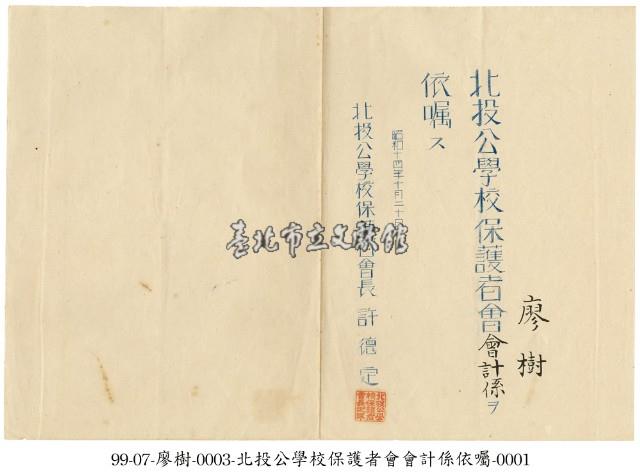 廖樹
北投公學校保護者會會計係ヲ
依囑ス
昭和十四年十月二十日
北投公學校保護者會長 許德定
臺北市立文獻館
99-07-廖樹-0003-北投公學校保護者會會計係依囑-0001